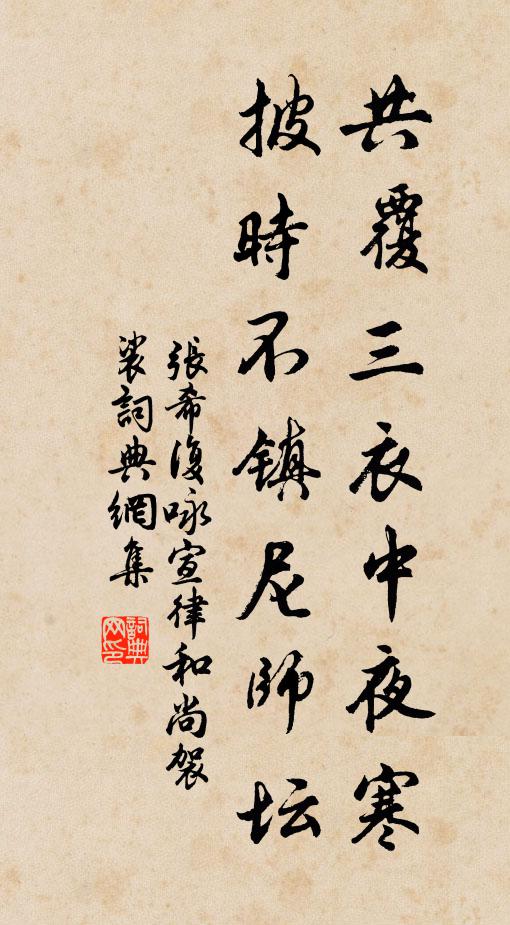 共覆三衣中夜寒
披時不镇尼師坛
張希復咏宣律和尚袈
裟詞典網集
詞典网印